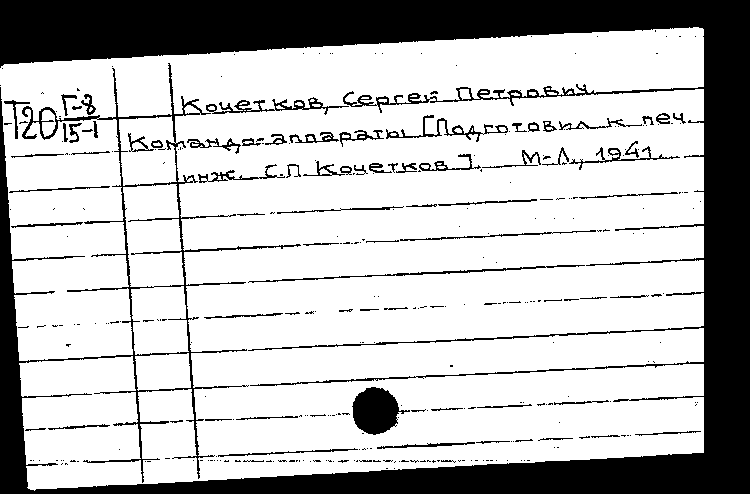 Т20 Г-8/15-1
Кочетков, Сергей Петрович.
Командо-аппараты [Подготовил к печ.
инж. С.П. Кочетков]. М-Л., 1941.